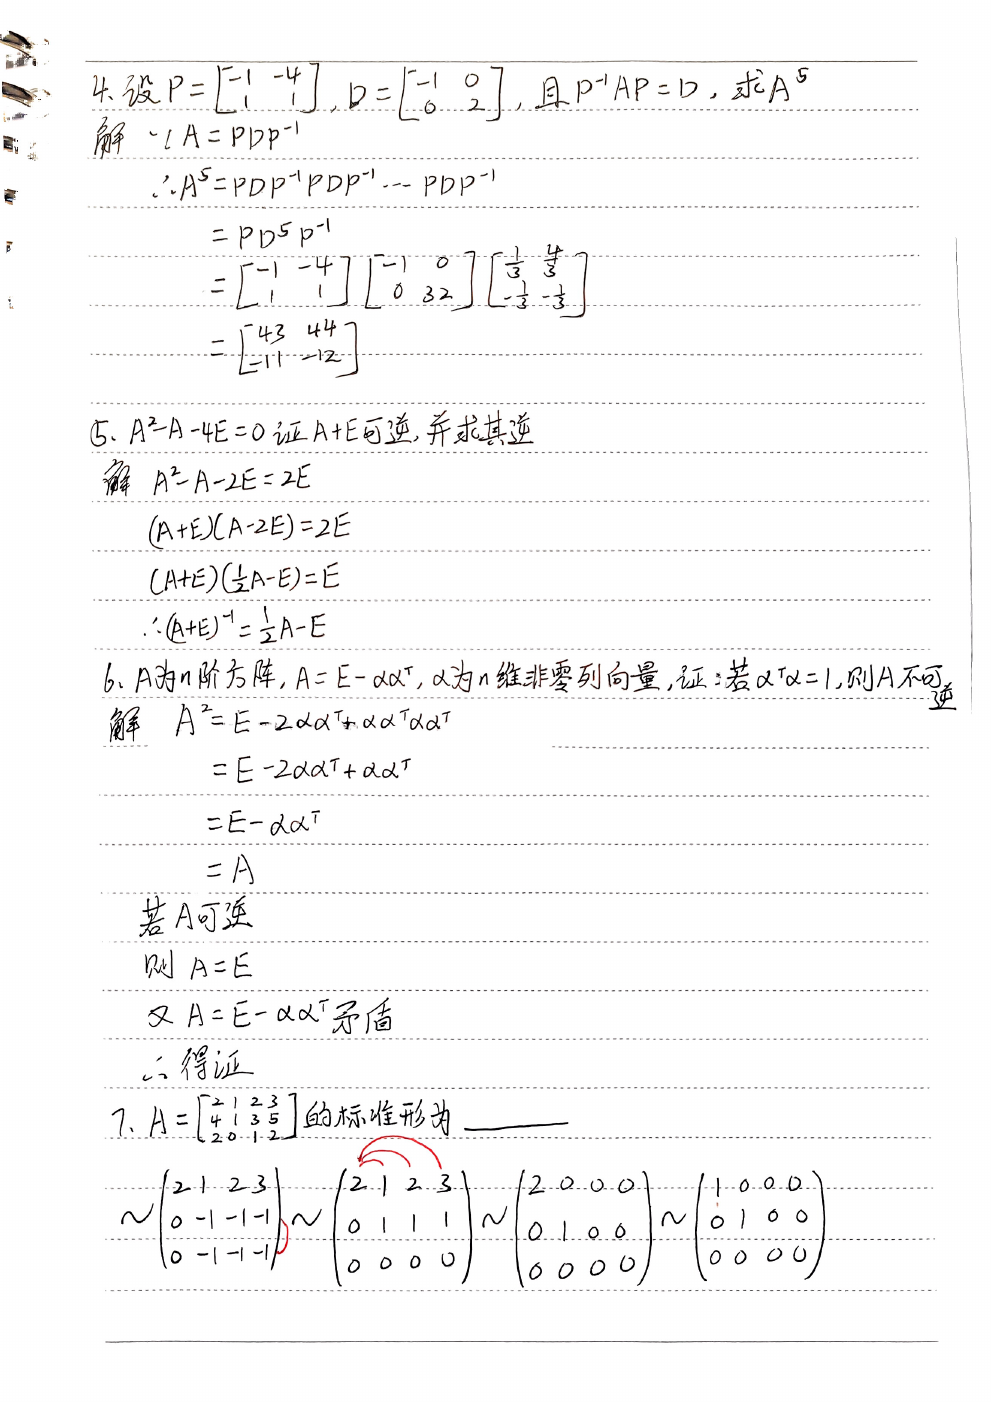 4. 设 P = [-1 -4; 1 1], D = [-1 0; 0 2], 且 P⁻¹AP = D, 求 A⁵
解 ∵ A = PDP⁻¹
∴ A⁵ = PDP⁻¹PDP⁻¹ ··· PDP⁻¹
= PD⁵P⁻¹
= [-1 -4; 1 1] [-1 0; 0 32] [1/3 4/3; -1/3 -1/3]
= [43 44; -11 -12]
⑤. A²-A-4E=0 证 A+E可逆, 并求其逆
解 A²-A-2E=2E
(A+E)(A-2E)=2E
(A+E)(½A-E)=E
∴(A+E)⁻¹=½A-E
6. A为n阶方阵, A=E-ααᵀ, α为n维非零列向量, 证:若αᵀα=1, 则A不可逆
解 A²=E-2ααᵀ+ααᵀααᵀ
=E-2ααᵀ+ααᵀ
=E-ααᵀ
=A
若A可逆
则 A=E
又 A=E-ααᵀ矛盾
∴ 得证
7. A=[2 1 2 3; 4 1 3 5; 2 0 1 2]的标准形为______
~ (2 1 2 3; 0 -1 -1 -1; 0 -1 -1 -1) ~ (2 1 2 3; 0 1 1 1; 0 0 0 0) ~ (2 0 0 0; 0 1 0 0; 0 0 0 0) ~ (1 0 0 0; 0 1 0 0; 0 0 0 0)